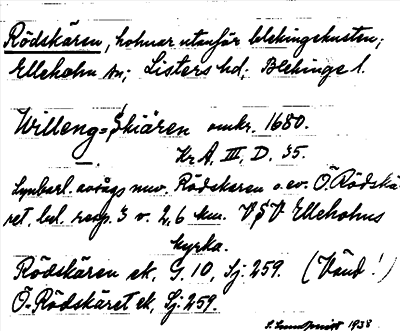 Rödskären, holmar utanför blekingekusten;
Elleholm sn; Listers hd; Blekinge l.
Willeng=Skiären omkr. 1680.
Kr A. III, D. 35.
Synbarl. avågs nuv. Rödskären o. ev. Ö. Rödskä-
ret, bel. resp. 3 v. 2,6 km. VSV Elleholms
kyrka.
Rödskären ek, G. 10, Sj: 259. (Vänd!)
Ö. Rödskäret ek, Sj: 259.
1938